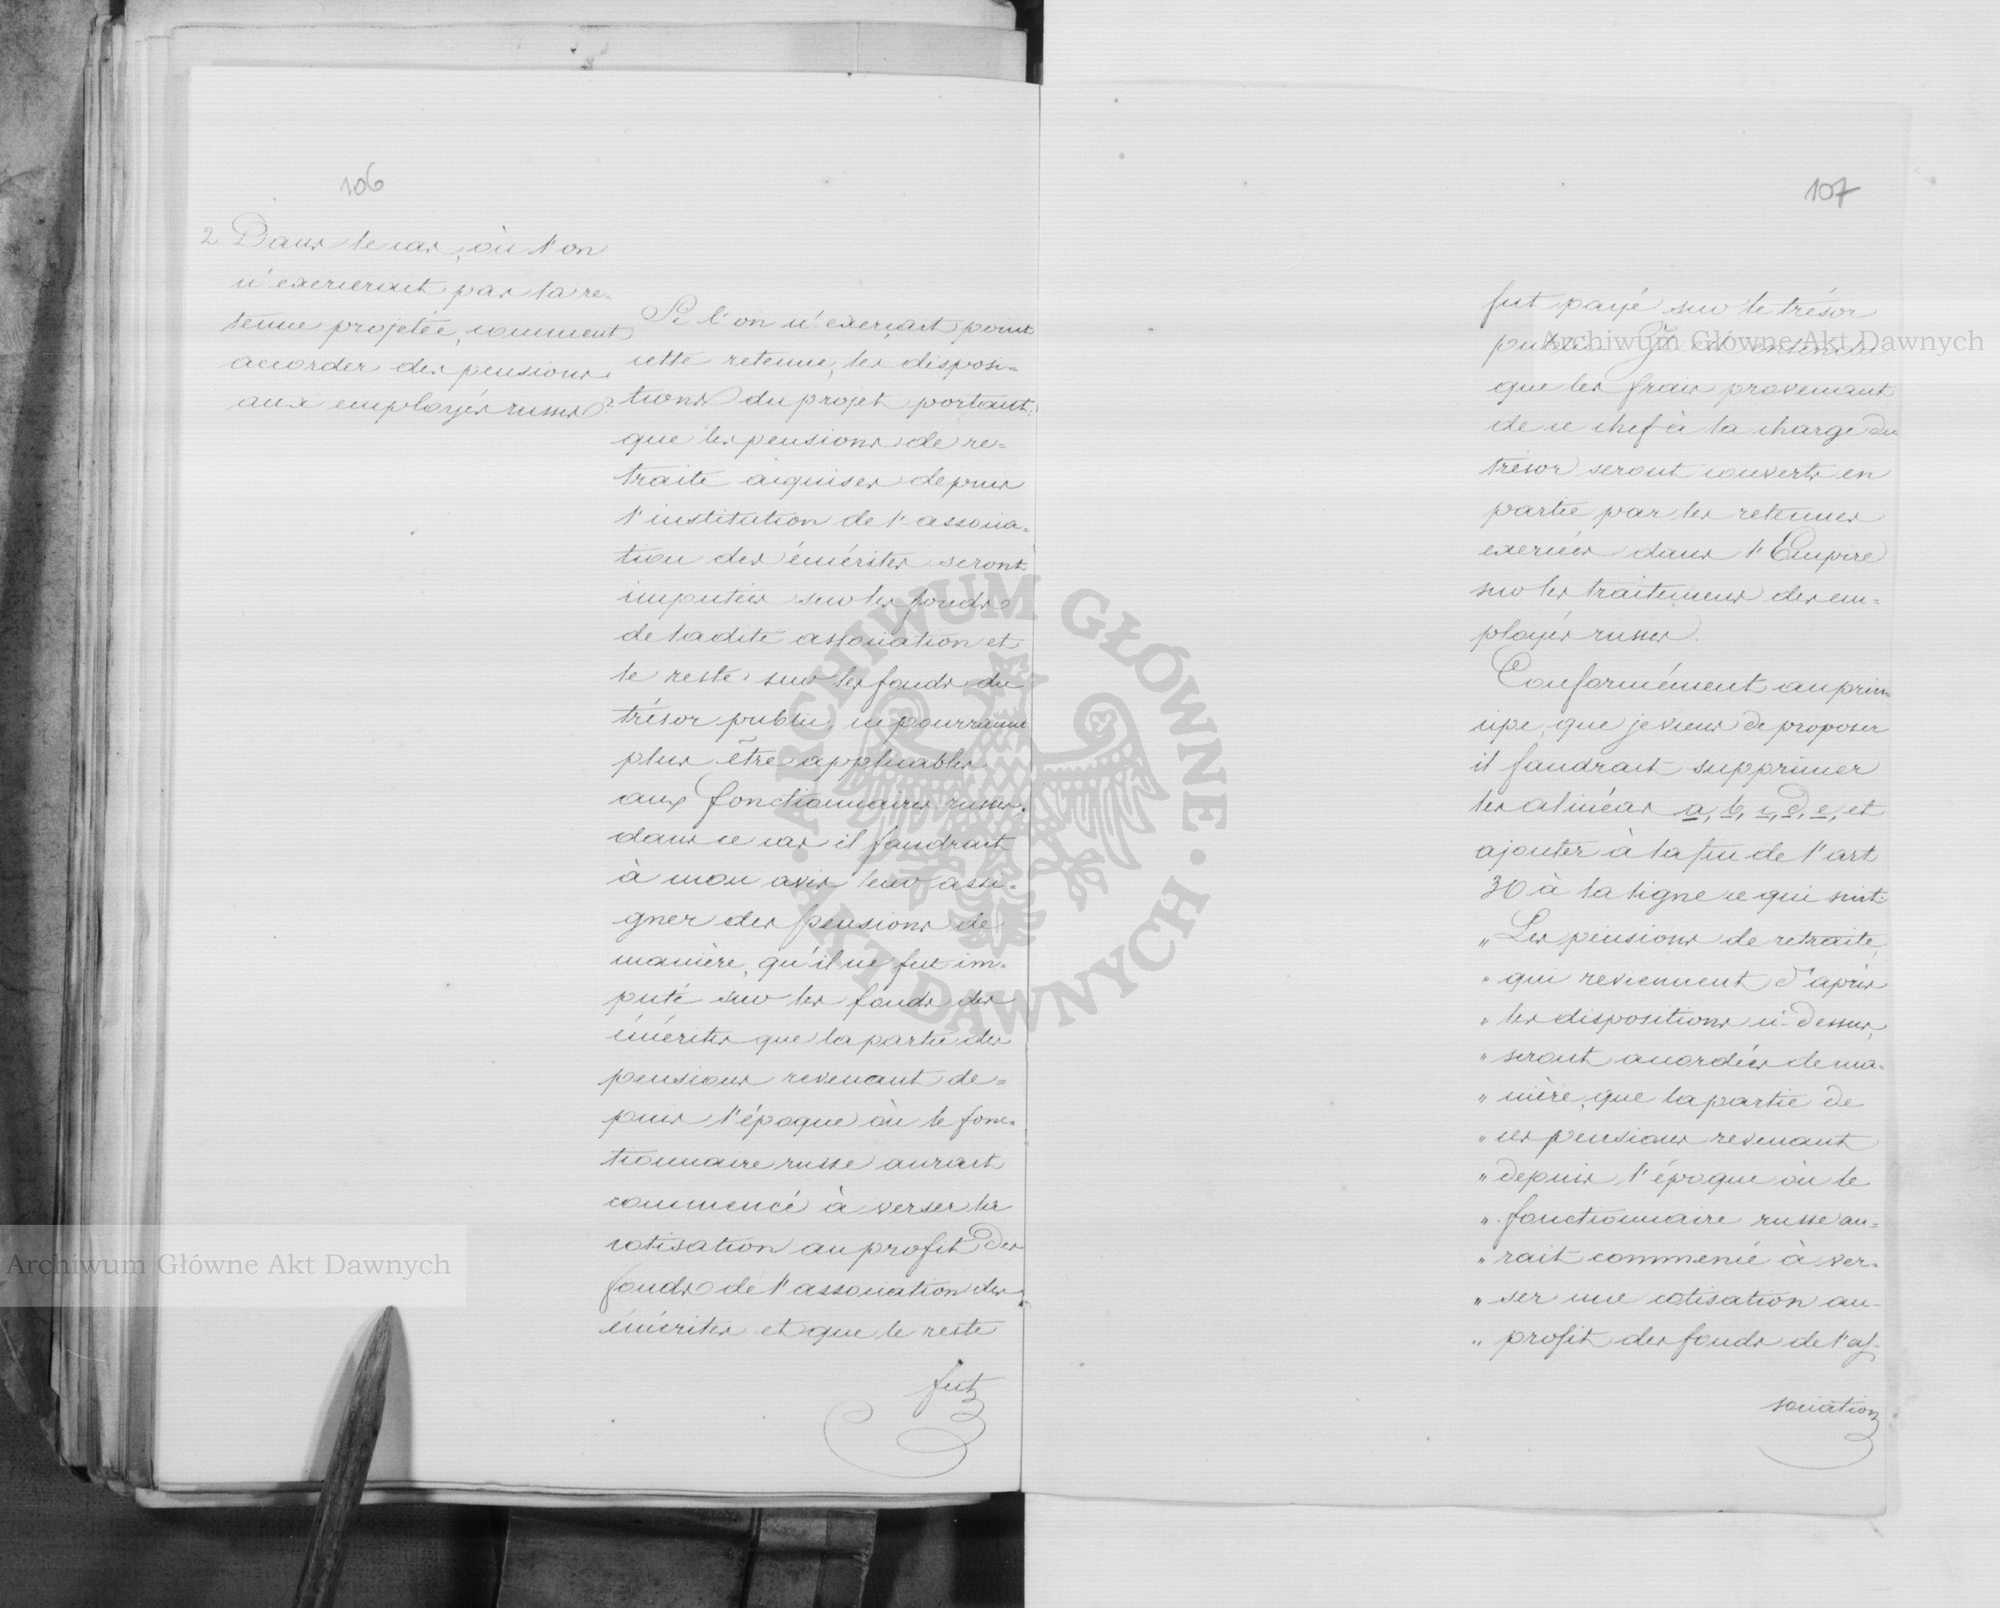 106
2 Dans le cas, où l'on
n'exercerait pas la re=
tenue projetée, comment
accorder des pensions
aux employés russes?
Si l'on n'exerçait point
cette retenue, les disposi=
tions du projet portant
que les pensions de re=
traite acquises depuis
l'institution de l'associa=
tion des émérites seront
imputées sur les fonds
de ladite association et
le reste sur les fonds du
trésor public, ne pourraient
plus être applicables
aux fonctionnaires russes;
dans ce cas il faudrait
à mon avis leur assi=
gner des pensions de
manière, qu'il ne fut im=
puté sur les fonds des
émérites que la partie des
pensions revenant de=
puis l'époque où le fonc=
tionnaire russe aurait
commencé à verser la
cotisation au profit des
fonds de l'association des
émérites et que le reste
fut
107
fut payé sur le trésor
public. Il est entendu
que les frais provenant
de ce chef à la charge du
trésor seront couverts en
partie par les retenues
exercées dans l'Empire
sur les traitemens des em=
ployés russes.
Conformément au prin=
cipe, que je viens de proposer
il faudrait supprimer
les alinéas a, b, c, d, e, et
ajouter à la fin de l'art
30 à la ligne ce qui suit:
„ Les pensions de retraite,
„ qui reviennent d'après
„ les dispositions ci-dessus,
„ seront accordées de ma=
„ nière, que la partie de
„ ces pensions revenant
„ depuis l'époque où le
„ fonctionnaire russe au=
„ rait commencé à ver=
„ ser une cotisation au
„ profit des fonds de l'as=
sociation
Archiwum Główne Akt Dawnych
Archiwum Główne Akt Dawnych
ARCHIWUM GŁÓWNE · AKT DAWNYCH ·